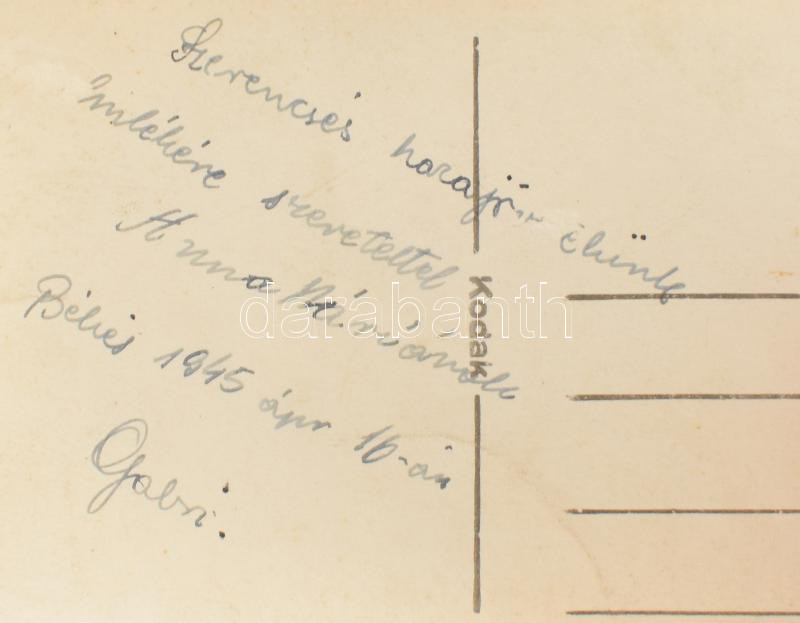 Szerencsés hazajö
emlékére szeretettel
Anna
Békés 1945 ápr 16-án
Gabri.
Kodak
darabanth